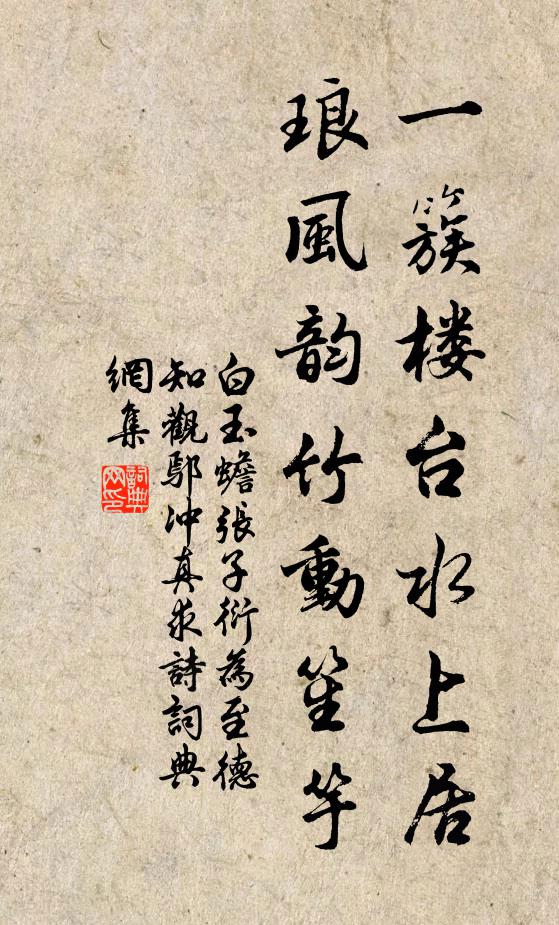 一簇楼台水上居
琅風韵竹動笙竽
白玉蟾張子衍為至德
知觀鄔冲真求詩詞典
網集
詞典
网印